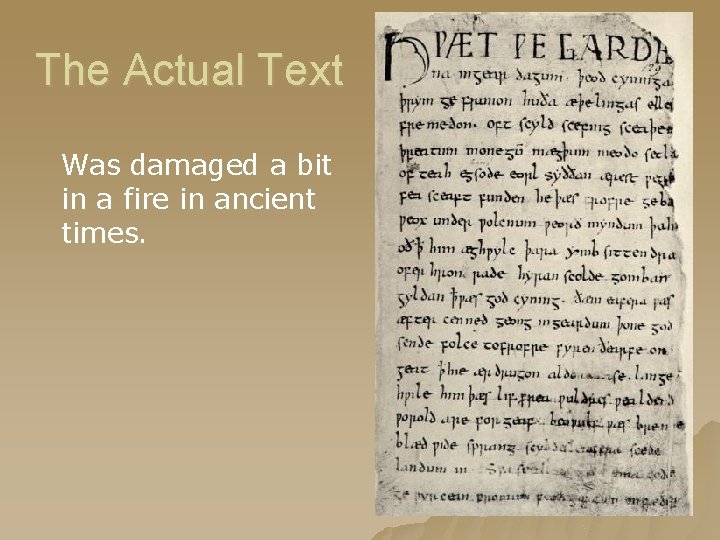 The Actual Text
Was damaged a bit
in a fire in ancient
times.
HǷÆT ǷE GARDE
na ingear dagum. þeod cyninga
þrym ge frunon huða æþelingas ellen
fremedon. oft scyld scefing sceaþen
þreatum monegū mægþum meodo setla
of teah egsode eorl syððan ærest
fea sceaft funden he þæs frofre geba
ƿeox under ƿolcnum ƿeorð myndum þah
oð þ him æghƿylc þara ymb sittendra
ofer hron rade hyran scolde gomban
gyldan þ ƿæs god cyning.
æfter cenned geong in geardum þone god
sende folce tofrofre fyren
geat þ hie ær drugon aldor
hƿile him þæs lif frea ƿuldres ƿealdend
ƿorold are forgeaf. ƿæs breme
blæd ƿide sprang
landum in